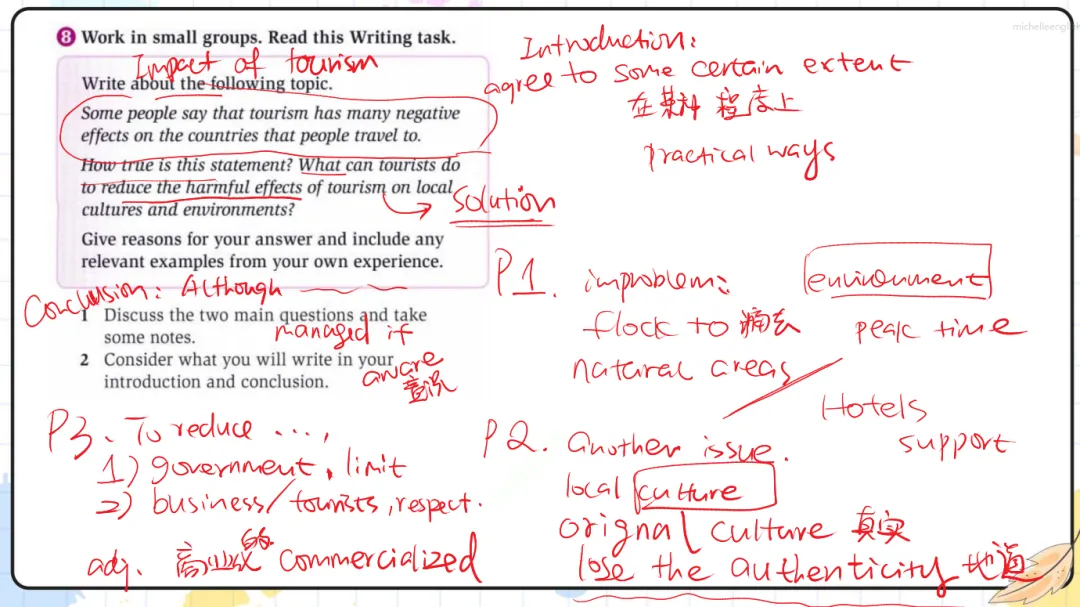 michelleenglish
8 Work in small groups. Read this Writing task.
Impact of tourism
Write about the following topic.
Some people say that tourism has many negative
effects on the countries that people travel to.
How true is this statement? What can tourists do
to reduce the harmful effects of tourism on local
cultures and environments?
Give reasons for your answer and include any
relevant examples from your own experience.
1 Discuss the two main questions and take
some notes.
2 Consider what you will write in your
introduction and conclusion.
solution
Introduction:
agree to some certain extent
在某种程度上
practical ways
Conclusion: Although
managed if
aware
意识
P1. improblem: environment
flock to 涌去 peak time
natural areas
Hotels
support
P2. another issue.
local culture
orignal culture 真实
lose the authenticity 地道
P3. To reduce ...,
1) government, limit
2) business/tourists, respect.
adj. 商业化的 commercialized